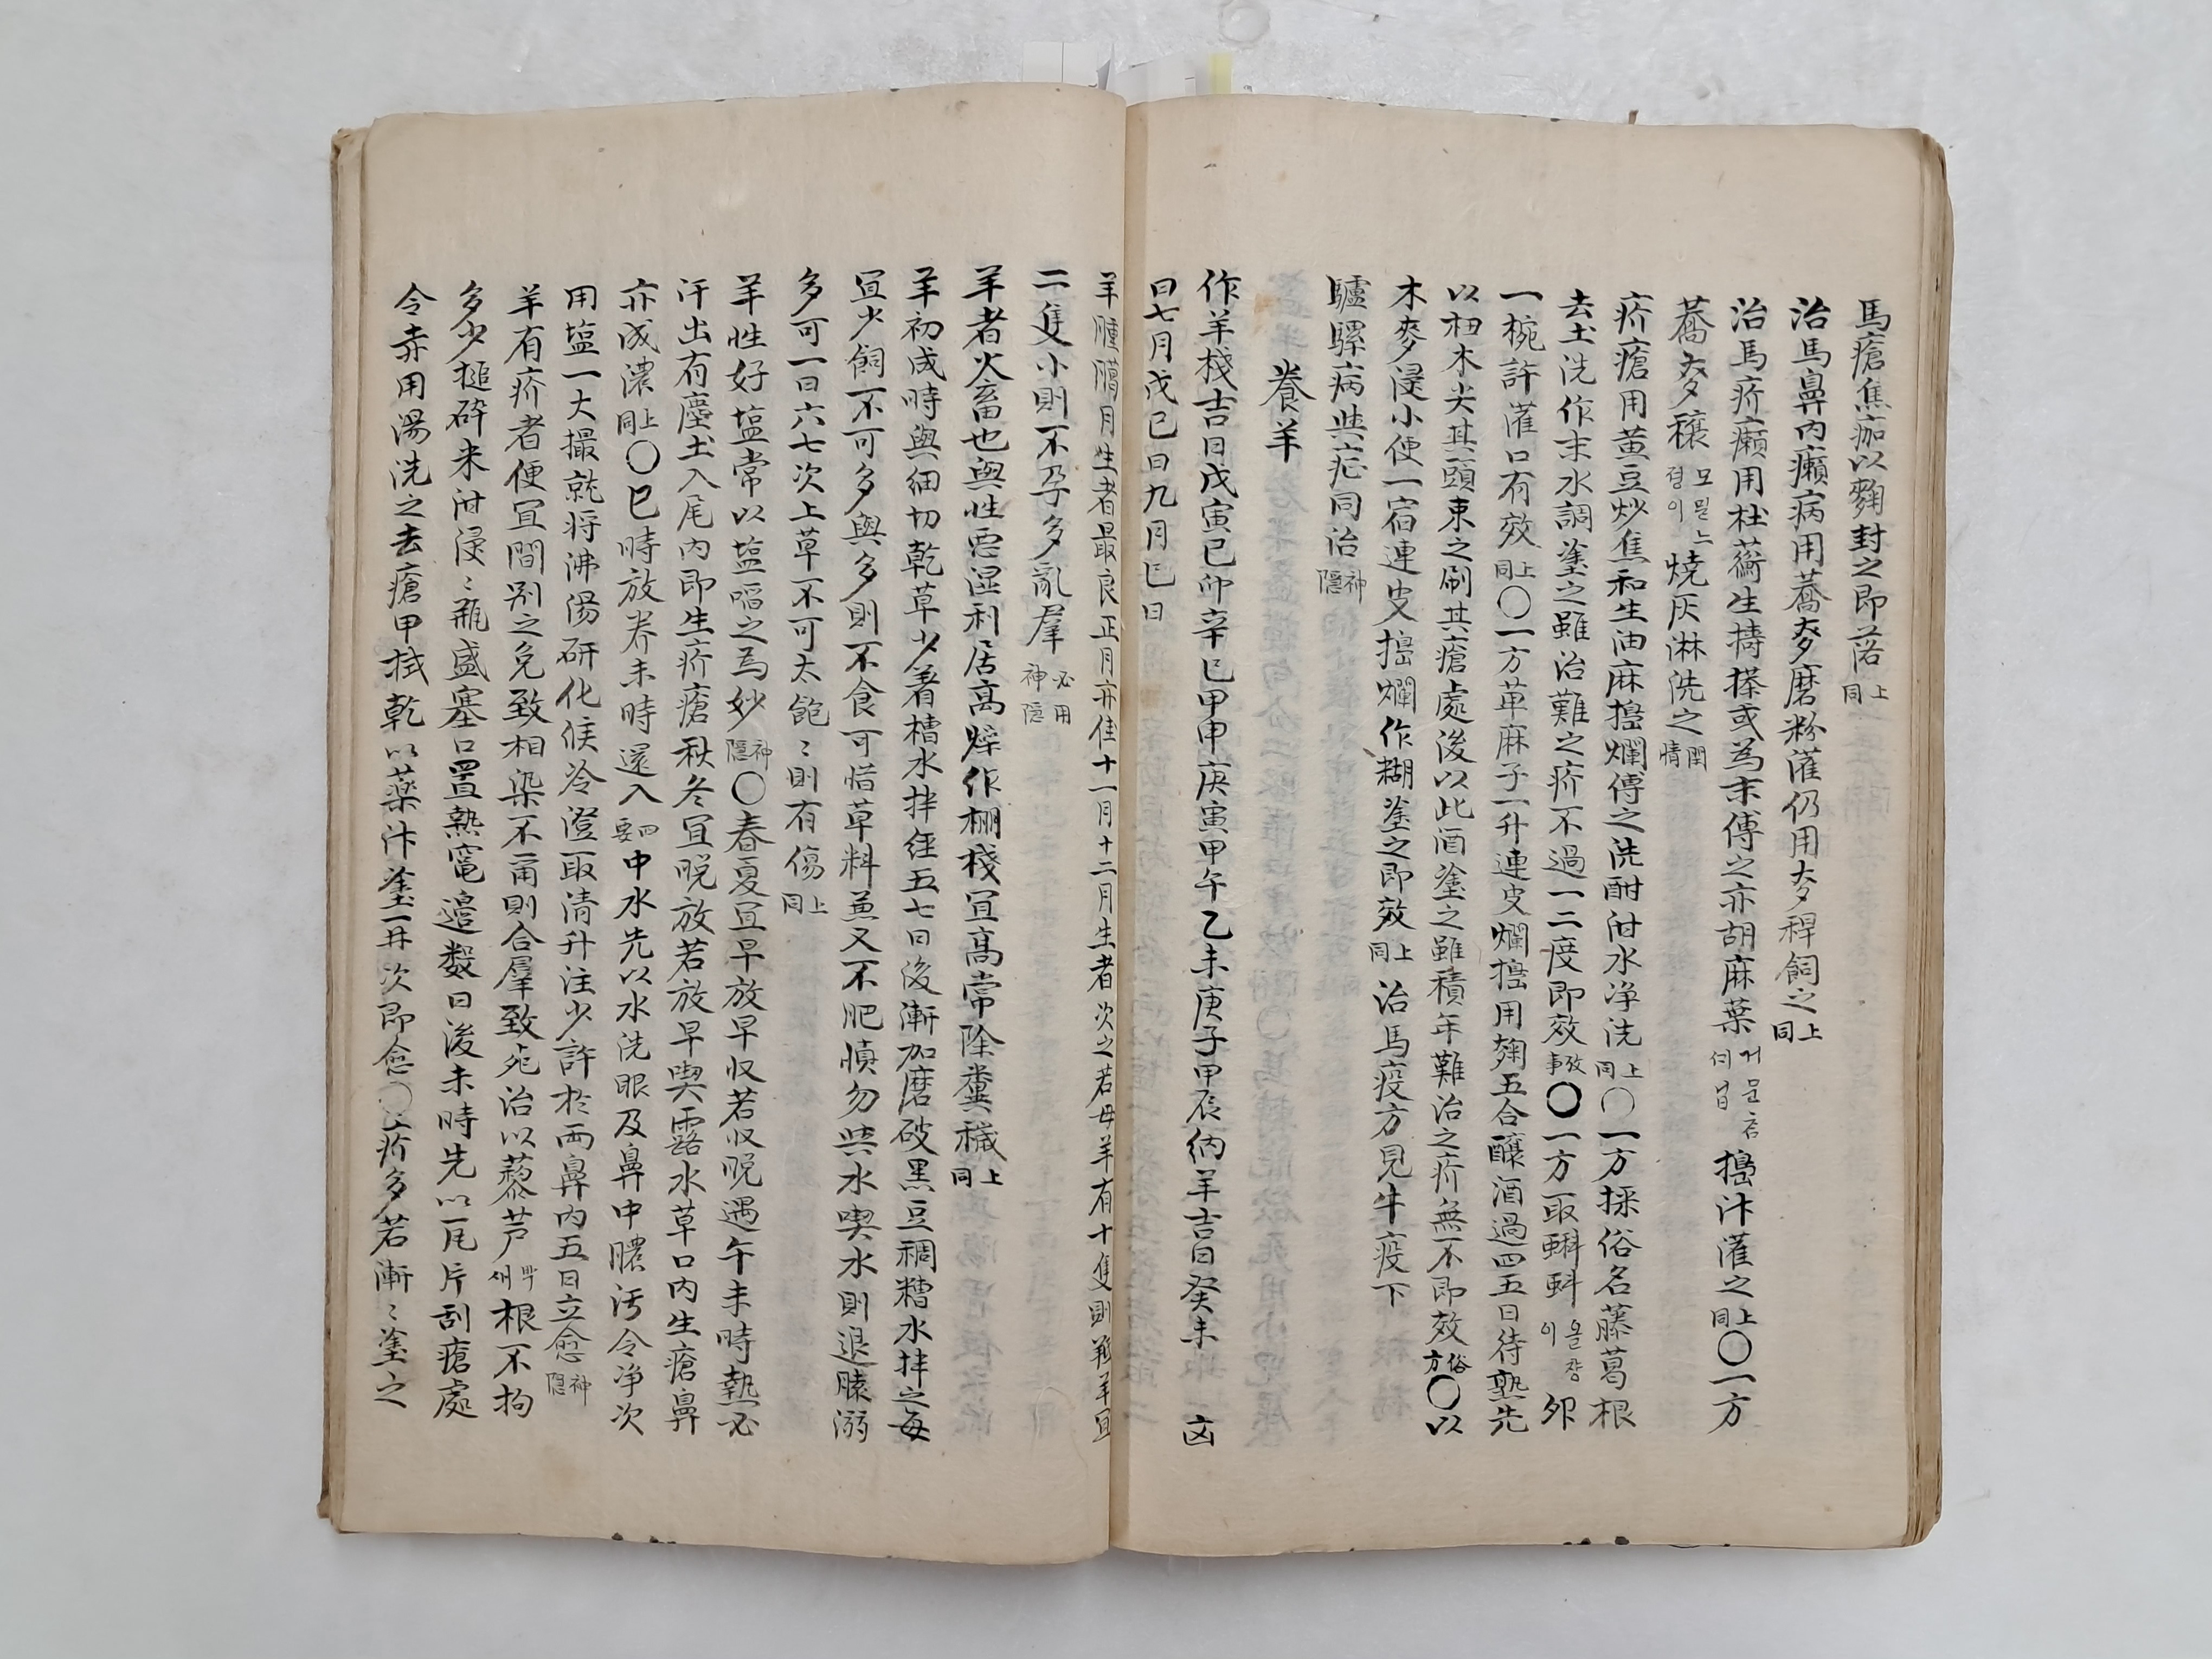 馬瘡焦痂以麴封之即落 上同
治馬鼻內癩病用蕎麥磨粉灌仍用大麥稈飼之 上同
治馬疥癩用杜蘅生擣搽或爲末傅之亦胡麻葉 거문춤ᄭᅢ닙 搗汁灌之 上同 〇一方
蕎麥穰 모밀느졍이 燒灰淋洗之 閑情
疥瘡用黃豆炒焦和生油麻搗爛傅之洗酣泔水净洗 上同 〇一方採俗名藤葛根
去土洗作末水調塗之雖治難之疥不過一二度即效 攷事 〇一方取蝌蚪 올창이 卵
一椀許灌口有效 上同 〇一方萆麻子一升連皮爛搗用麴五合釀酒過四五日待熟先
以杻木尖其頭束之刷其瘡處後以此酒塗之雖積年難治之疥無不即效 俗方 〇以
木麥浸小便一宿連皮搗爛作糊塗之即效 上同 治馬疫方見牛疫下
驢騾病與疪同治 神隱
養羊
作羊棧吉日戊寅己卯辛巳甲申庚寅甲午乙未庚子甲辰納羊吉日癸未 凶
日七月戊巳日九月巳日
羊腫滿月生者最良正月亦佳十一月十二月生者次之若母羊有十隻則羖羊宜
二隻小則不孕多亂羣 必用神隱
羊者火畜也與性惡湿利居高燥作棚棧宜高常除糞穢 上同
羊初成時與細切乾草少着槽水拌經五七日後漸加磨破黑豆稠糟水拌之每
宜少飼不可多與多則不食可惜草料兼又不肥愼勿與水喫水則退膘溺
多可一日六七次上草不可太飽〻則有傷 上同
羊性好塩常以塩啗之爲妙 神隱 〇春夏宜早放早收若收晚遇午未時熱必
汗出有塵土入尾內即生疥瘡秋冬宜晚放若放早喫露水草口內生瘡鼻
亦成濃 上同 〇巳時放养未時還入 四要 中水先以水洗眼及鼻中膿污令净次
用塩一大撮就将沸湯研化候冷澄取清升注少許於两鼻內五日立愈 神隱
羊有疥者便宜間别之免致相染不甭則合羣致死治以藜芦 박새 根不拘
多少搥碎米泔浸〻瓶盛塞口置熱竈邉數日後未時先以瓦片刮瘡處
令赤用湯洗之去瘡甲拭乾以藥汁塗一再次即愈〇疥多若漸〻塗之